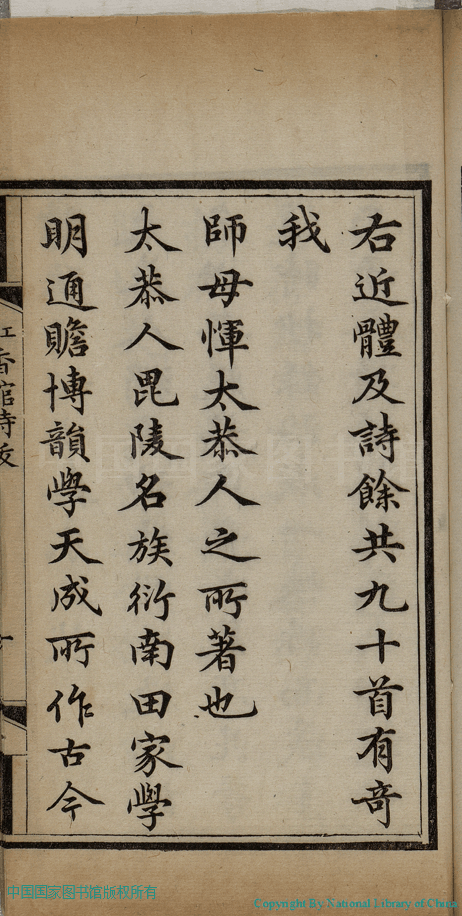 右近體及詩餘共九十首有奇
我
師母惲太恭人之所著也
太恭人毘陵名族衍南田家學
明通贍博韻學天成所作古今
香館詩
中国国家图书馆
中国国家图书馆版权所有
Copyright By National Library of China